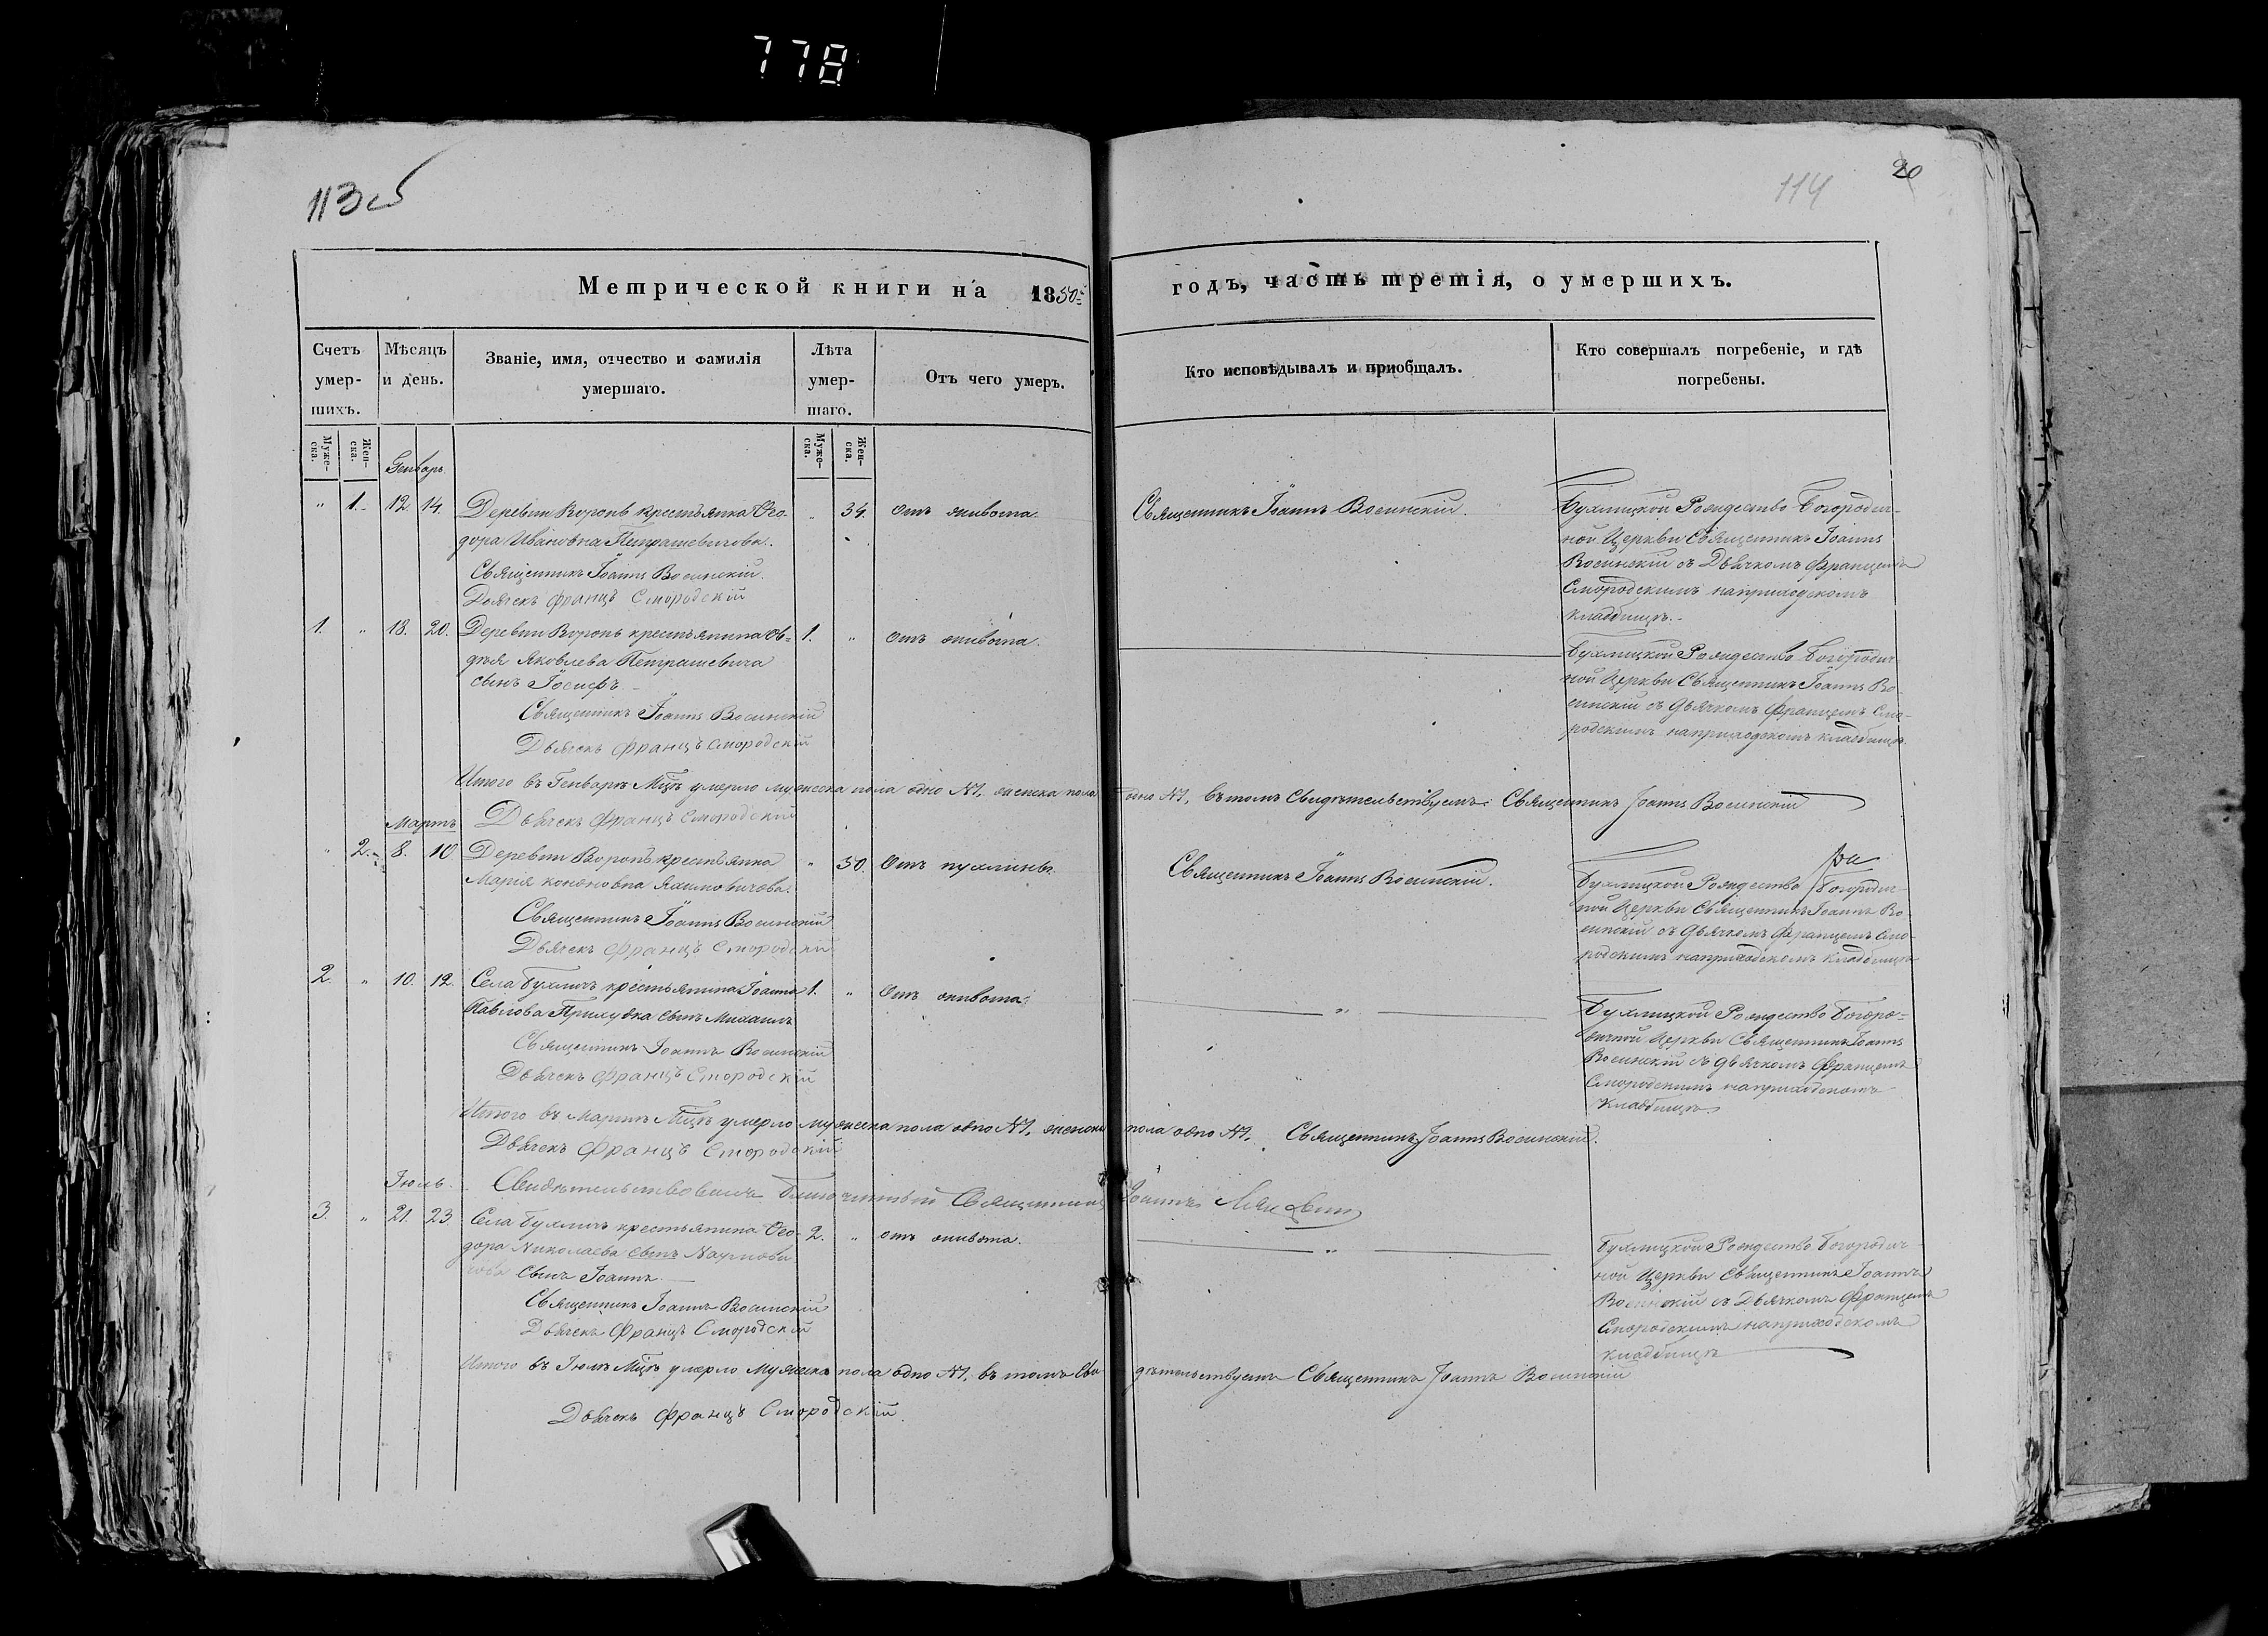 778
113об
114
20
Метрической книги на 1850й
годъ, часть третія, о умершихъ.
Счетъ умер-шихъ.
Мѣсяцъ и день.
Званіе, имя, отчество и фамилія умершаго.
Лѣта умер-шаго.
Отъ чего умеръ.
Кто исповѣдывалъ и пріобщалъ.
Кто совершалъ погребеніе, и гдѣ погребены.
Муже-ска.
Жен-ска.
Муже-ска.
Жен-ска.
Генварь.
" 1. 12. 14. Деревни Воронъ крестьянка Өео-
дора Ивановна Петрашевичова.
Священникъ Іоаннъ Восинскій.
Дьячекъ Францъ Смородскій
" 34. отъ живота.
Священникъ Іоаннъ Восинскій.
Бухлицкой Рождество Богородич-
ной Церкви Священникъ Іоаннъ
Восинскій съ Дьячкомъ Францемъ
Смородскимъ на приходскомъ
кладбищѣ.
1. " 18. 20. Деревни Воронъ крестьянина Ов-
дѣя Яковлева Петрашевича
сынъ Іосифъ.
Священникъ Іоаннъ Восинскій
Дьячекъ Францъ Смородскій
1. " отъ живота.
Бухлицкой Рождество Богородич
ной Церкви Священникъ Іоаннъ Во-
синскій съ Дьячкомъ Францемъ Смо-
родскимъ на приходскомъ кладбищѣ.
Итого въ Генварѣ М҃цѣ умерло мужеска пола одно №1, женска пола одно №1, въ томъ Свидѣтельствуемъ: Священникъ Іоаннъ Восинскій
Дьячекъ Францъ Смородскій
Мартъ
" 2. 8. 10 Деревни Воронъ крестьянка
Марія Кононовна Яхимовичова.
Священникъ Іоаннъ Восинскій
Дьячекъ Францъ Смородскій
" 50. Отъ пухлины.
Священникъ Іоаннъ Восинскій.
Бухлицкой Рождество Богородич-
ной Церкви Священникъ Іоаннъ Во-
синскій съ Дьячкомъ Францемъ Смо-
родскимъ на приходскомъ кладбищѣ
2. " 10. 12. Села Бухличъ крестьянина Іоанна
Павлова Прилуцка сынъ Михаилъ
Священникъ Іоаннъ Восинскій
Дьячекъ Францъ Смородскій
1. " Отъ живота.
"
Бухлицкой Рождество Богоро-
дичной Церкви Священникъ Іоаннъ
Восинскій съ Дьячкомъ Францемъ
Смородскимъ на приходскомъ
кладбищѣ.
Итого въ Мартѣ М҃цѣ умерло мужеска пола одно №1, женска пола одно №1, Священникъ Іоаннъ Восинскій.
Дьячекъ Францъ Смородскій
Свидѣтельствовалъ Благочинный Священникъ Іоаннъ
Іюль.
3. " 21. 23. Села Бухличъ крестьянина Өео-
дора Николаева сынъ
сынъ Іоаннъ.
Священникъ Іоаннъ Восинскій
Дьячекъ Францъ Смородскій
2. " отъ живота.
"
Бухлицкой Рождество Богородич-
ной Церкви Священникъ Іоаннъ
Восинскій съ Дьячкомъ Францемъ
Смородскимъ на приходскомъ
кладбищѣ
Итого въ Іюлѣ М҃цѣ умерло Мужеска пола одно №1, въ томъ Сви-дѣтельствуемъ Священникъ Іоаннъ Восинскій
Дьячекъ Францъ Смородскій.